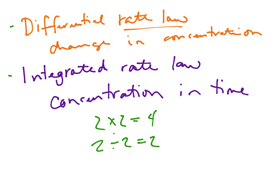 - Differential rate law
change in concentration
- Integrated rate law
Concentration in time
2 x 2 = 4
2 ÷ 2 = 2